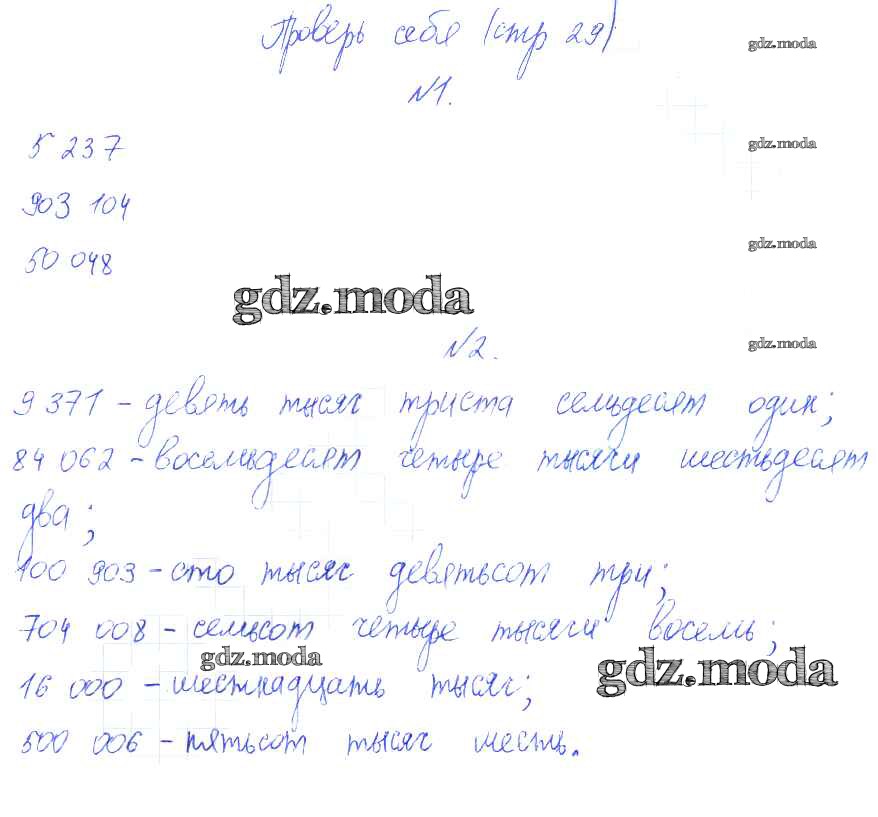 Проверь себя (стр 29)
gdz.moda
№1.
5 237
gdz.moda
903 104
50 048
gdz.moda
gdz.moda
№2.
gdz.moda
9 371 - девять тысяч триста семьдесят один;
84 062 - восемьдесят четыре тысячи шестьдесят
два;
100 903 - сто тысяч девятьсот три;
704 008 - семьсот четыре тысячи восемь;
gdz.moda
gdz.moda
16 000 - шестнадцать тысяч;
500 006 - пятьсот тысяч шесть.